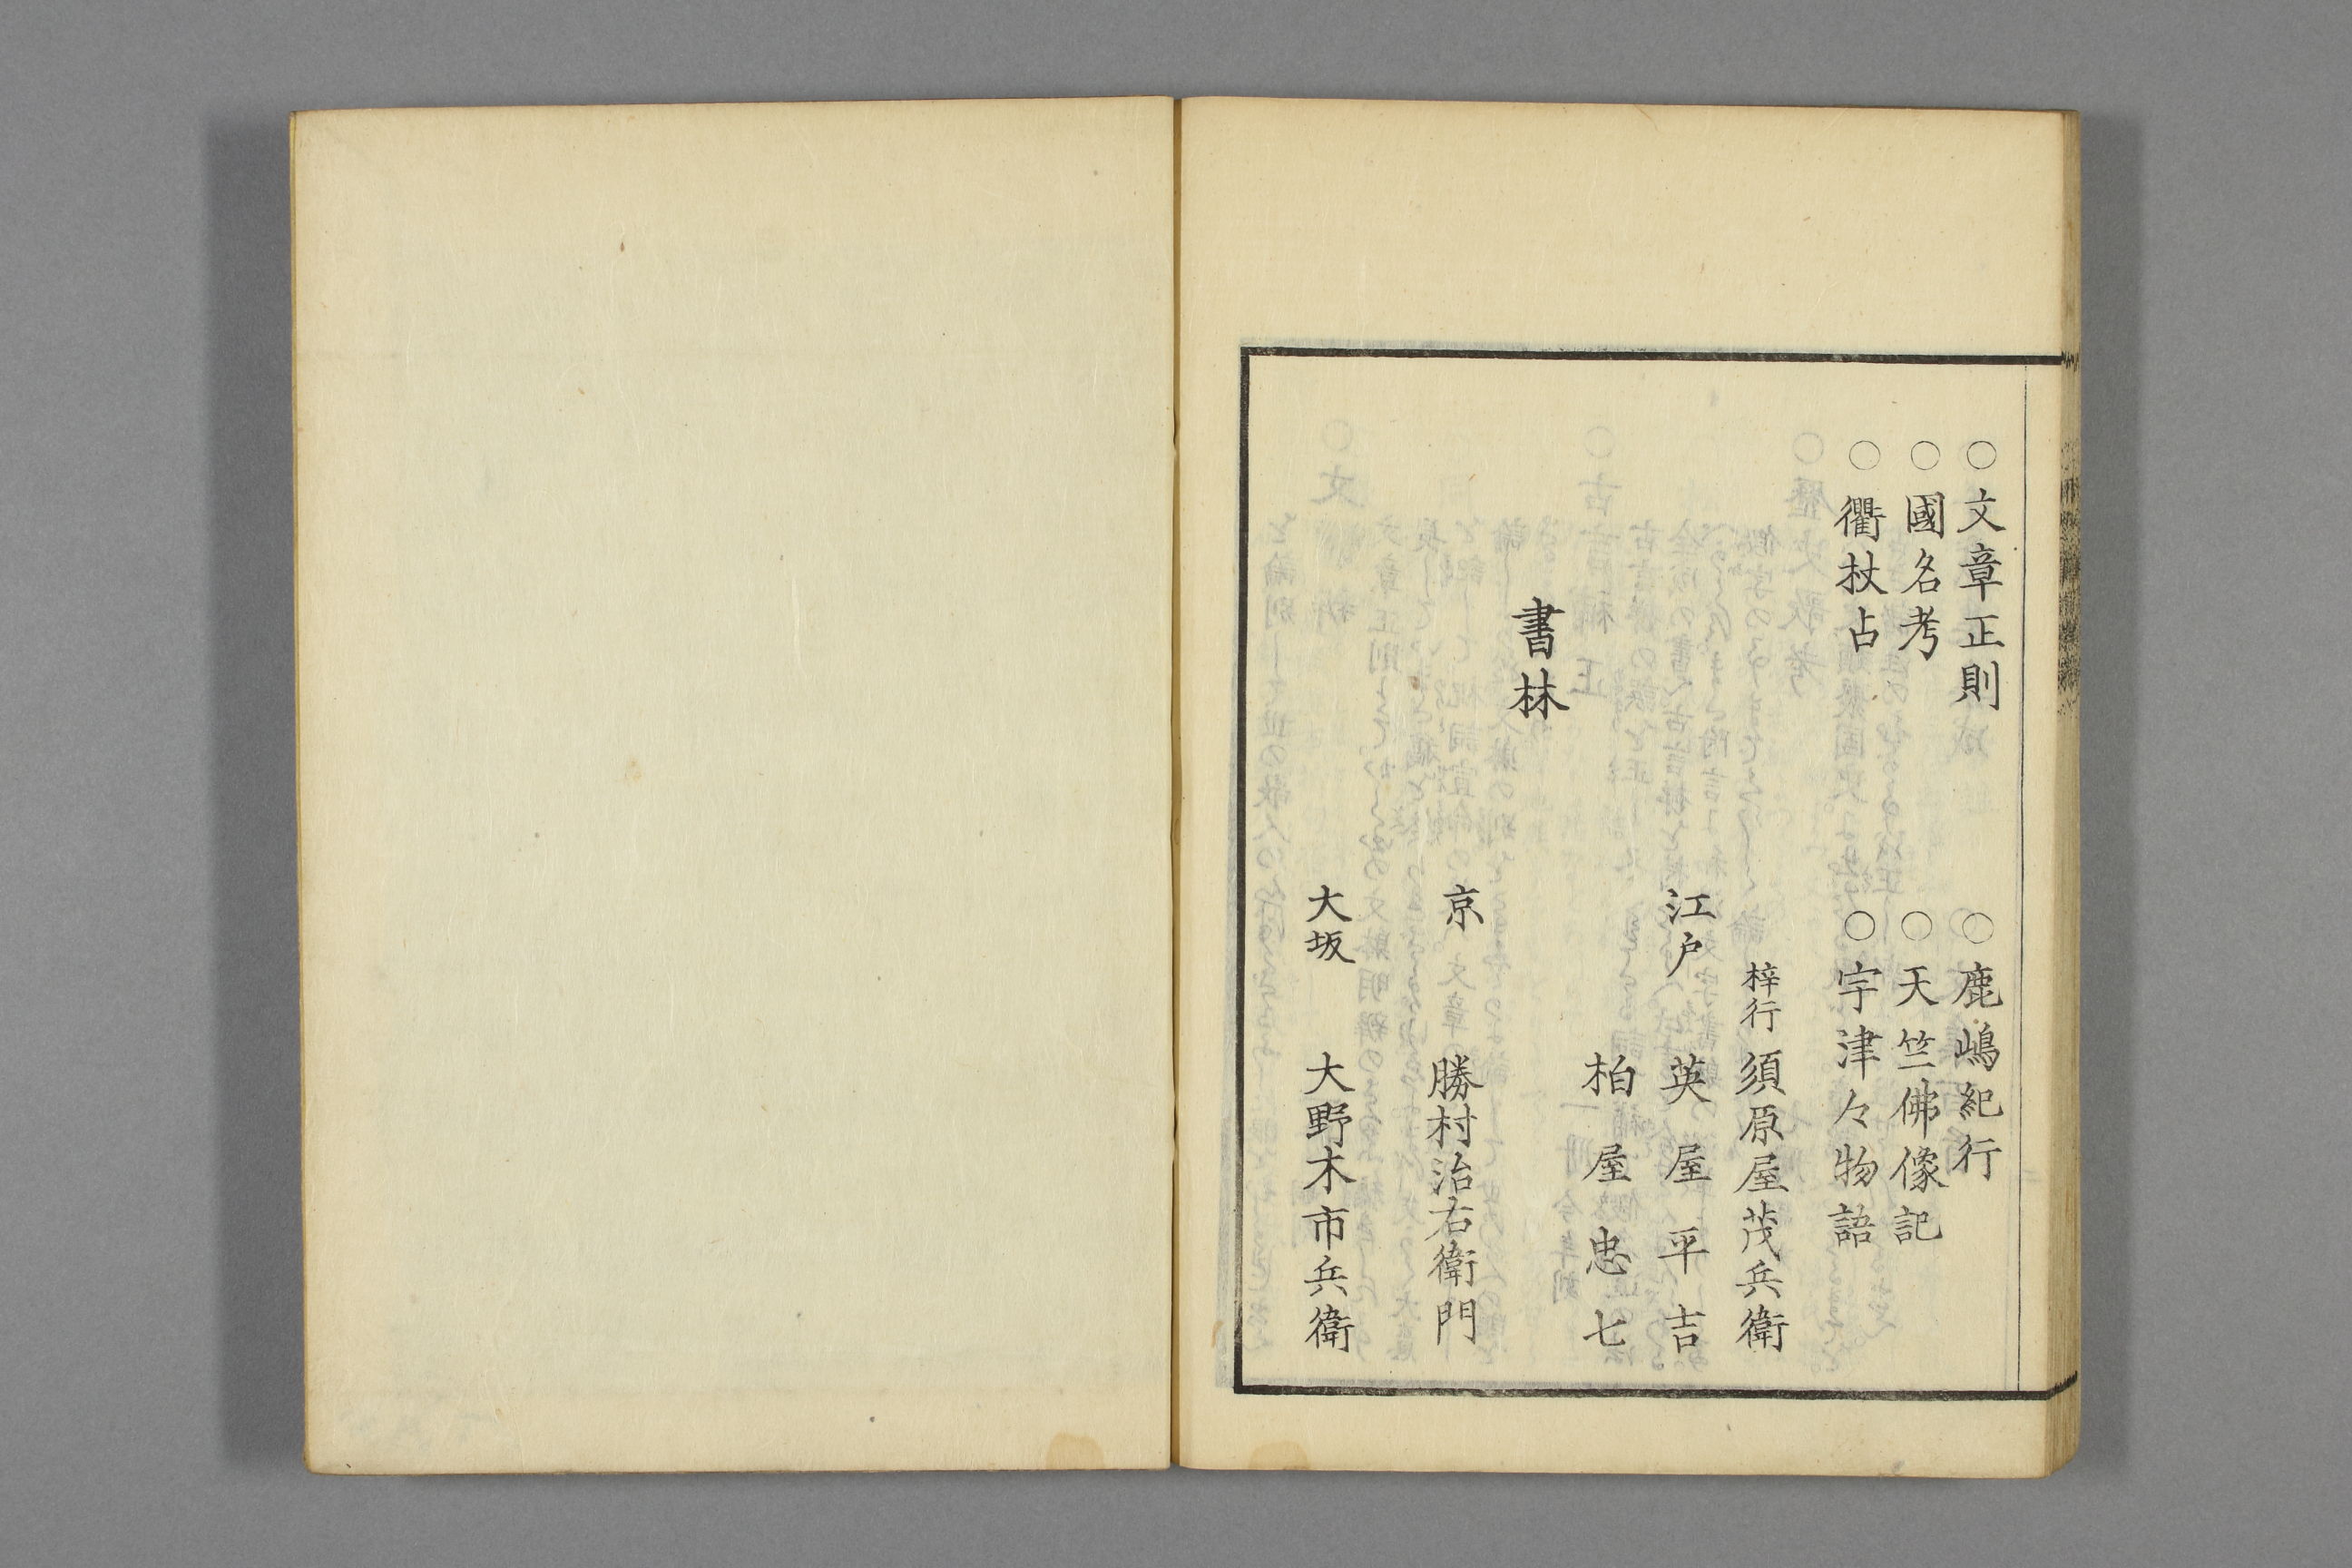 ○文章正則　○鹿嶋紀行
○國名考　○天竺佛像記
○衢杖占　○宇津々物語
梓行　須原屋茂兵衛
江戸　英屋平吉
柏屋忠七
書林
京　勝村治右衛門
大坂　大野木市兵衛